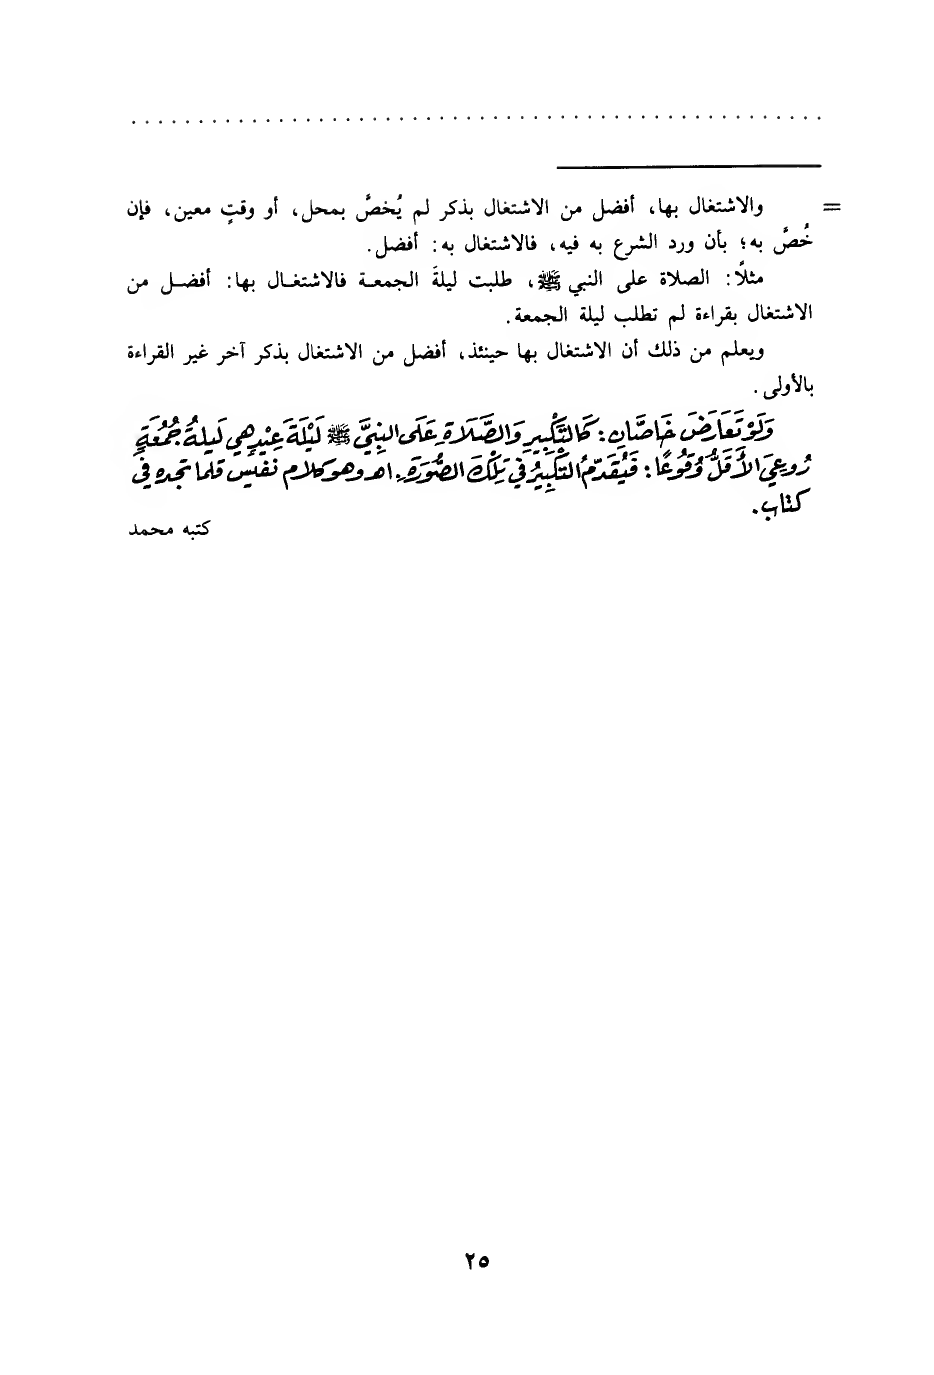 . . . . . . . . . . . . . . . . . . . . . . . . . . . . . . . . . . . . . . . . . . . . . . . . . . . .
= والاشتغال بها، أفضل من الاشتغال بذكر لم يُخصَّ بمحل، أو وقتٍ معين، فإن
خُصَّ به؛ بأن ورد الشرع به فيه، فالاشتغال به: أفضل.
مثلًا: الصلاة على النبي ﷺ، طلبت ليلةَ الجمعة فالاشتغال بها: أفضل من
الاشتغال بقراءة لم تطلب ليلة الجمعة.
ويعلم من ذلك أن الاشتغال بها حينئذ، أفضل من الاشتغال بذكر آخر غير القراءة
بالأولى.
وَلَوْ تَعَارَضَ خَاصَّانِ: كَالتَّكْبِيرِ وَالصَّلَاةِ عَلَى النَّبِيِّ ﷺ لَيْلَةَ عِيْدٍ هِي لَيلةُ جُمُعَةٍ
رُوعِيَ الأَقَلُّ وُقُوعًا: فَيُقَدَّمُ التَّكْبِيرُ فِي تِلْكَ الصُّورَةِ. اهـ وهو كلام نفيس قلما تجده في
كتاب.
كتبه محمد
٢٥